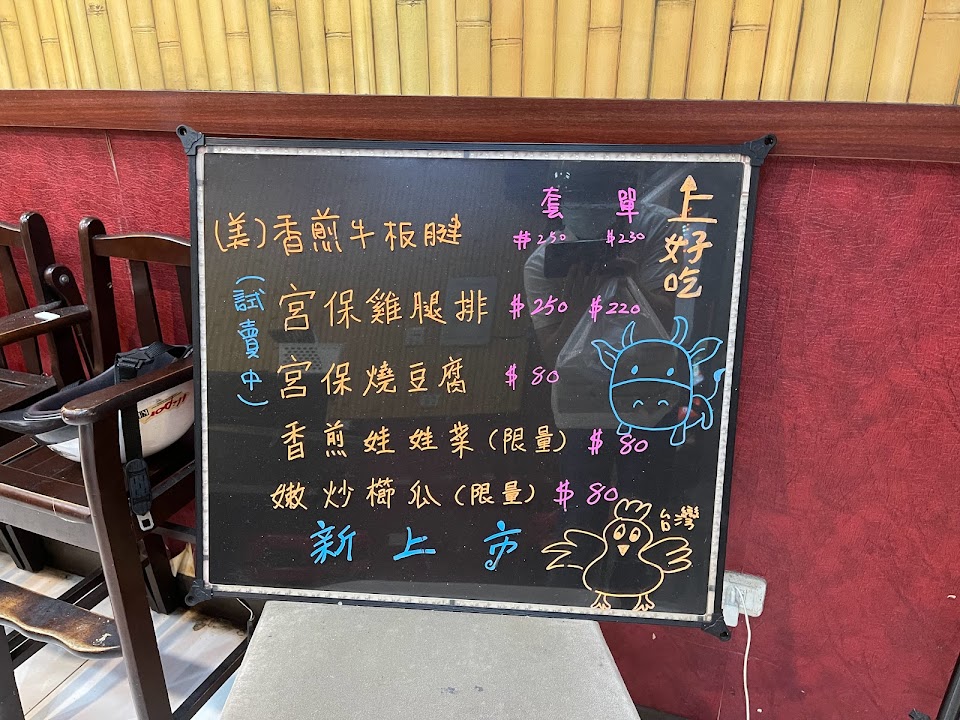 套 單
(美)香煎牛板腱 $250 $230
(試賣中)
宮保雞腿排 $250 $220
宮保燒豆腐 $80
香煎娃娃菜(限量) $80
嫩炒櫛瓜(限量) $80
新上市
上好吃
台灣